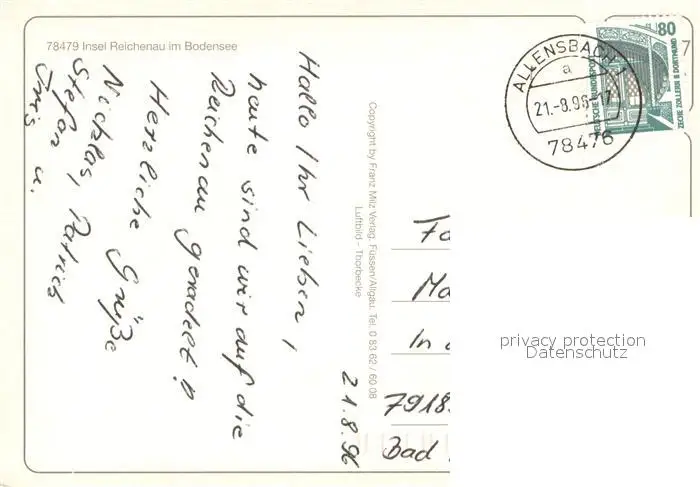 78479 Insel Reichenau im Bodensee
Hallo Ihr Lieben,
heute sind wir auf die
Reichenau geradelt!
Herzliche Grüße
Nicklas, Patrick
Stefan u.
Iris
21.8.96
Copyright by Franz Milz Verlag, Füssen/Allgäu, Tel. 0 83 62 / 60 08
Luftbild - Thorbecke
ALLENSBACH 1
a
21.-8.96-17
78476
80
DEUTSCHE BUNDESPOST
ZECHE ZOLLERN II DORTMUND
Fa
Ma
In
7918
Bad
privacy protection
Datenschutz